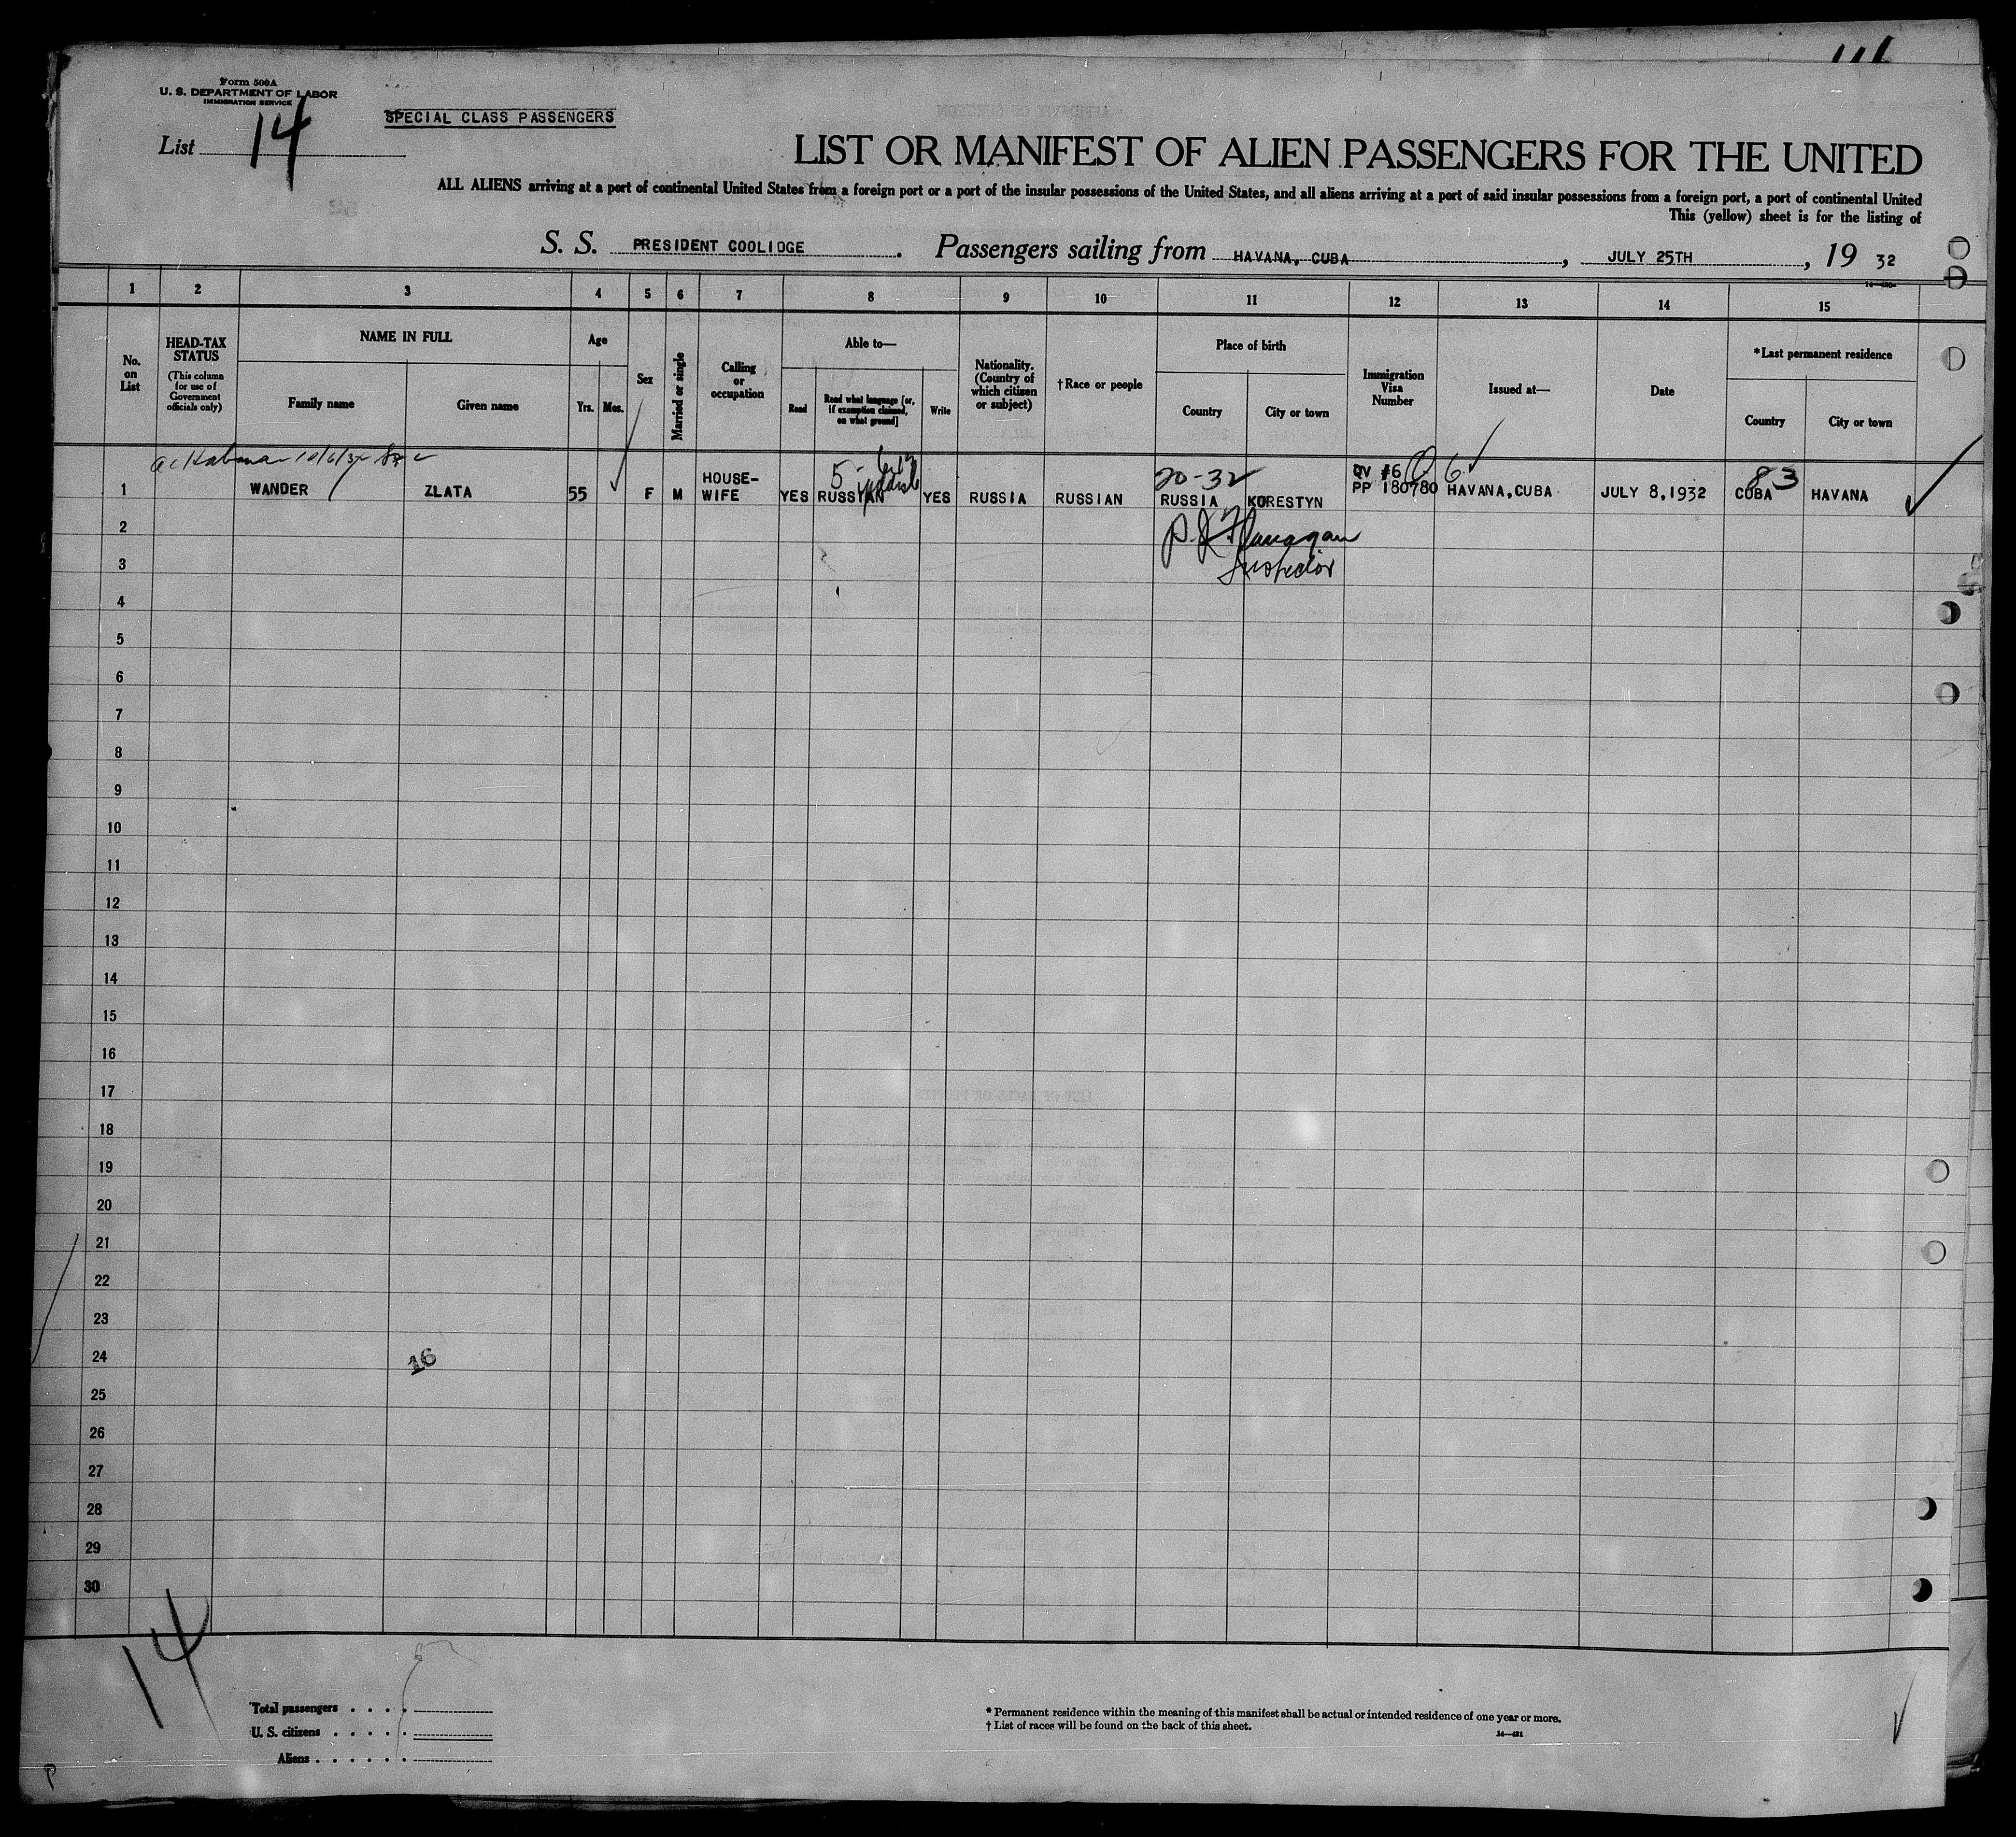 Form 500A
U. S. DEPARTMENT OF LABOR
IMMIGRATION SERVICE
List 14
SPECIAL CLASS PASSENGERS
LIST OR MANIFEST OF ALIEN PASSENGERS FOR THE UNITED
ALL ALIENS arriving at a port of continental United States from a foreign port or a port of the insular possessions of the United States, and all aliens arriving at a port of said insular possessions from a foreign port, a port of continental United
This (yellow) sheet is for the listing of
S. S. PRESIDENT COOLIDGE. Passengers sailing from HAVANA, CUBA, JULY 25TH, 19 32
1 2 3 4 5 6 7 8 9 10 11 12 13 14 15
No. on List
HEAD-TAX STATUS
(This column for use of Government officials only)
NAME IN FULL
Family name
Given name
Age
Yrs. Mos.
Sex
Married or single
Calling or occupation
Able to—
Read
Read what language [or, if exemption claimed, on what ground]
Write
Nationality. (Country of which citizen or subject)
†Race or people
Place of birth
Country
City or town
Immigration Visa Number
Issued at—
Date
*Last permanent residence
Country
City or town
10/6/32
5-
20-32
QV #6
6
83
1 WANDER ZLATA 55 F M HOUSE-WIFE YES RUSSIAN Yiddish YES RUSSIA RUSSIAN RUSSIA KORESTYN PP 180780 HAVANA,CUBA JULY 8,1932 CUBA HAVANA
P. J. Flanagan
Inspector
2
3
4
5
6
7
8
9
10
11
12
13
14
15
16
17
18
19
20
21
22
23
24
16
25
26
27
28
29
30
14
Total passengers . . . .
U. S. citizens . . . . .
Aliens . . . . . .
* Permanent residence within the meaning of this manifest shall be actual or intended residence of one year or more.
† List of races will be found on the back of this sheet.
14—421